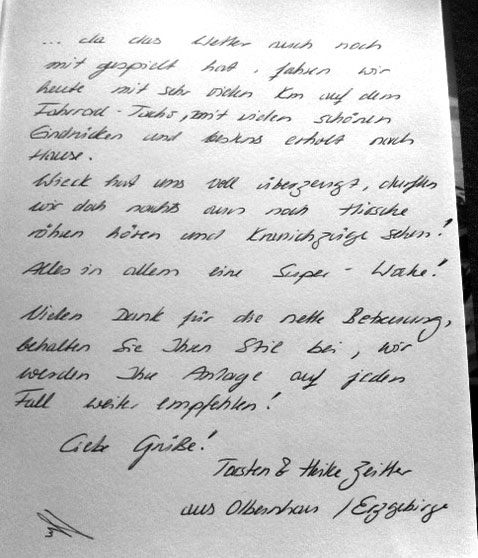 ... da das Wetter auch noch
mit gespielt hat, fahren wir
heute mit sehr vielen Km auf dem
Fahrrad-Tacho, mit vielen schönen
Eindrücken und bestens erholt nach
Hause.
Wieck hat uns voll überzeugt, durften
wir doch nachts nun noch Hirsche
röhren hören und Kranichzüge sehen!
Alles in allem eine Super-Woche!
Vielen Dank für die nette Betreuung,
behalten Sie Ihren Stil bei, wir
werden Ihre Anlage auf jeden
Fall weiter empfehlen!
Liebe Grüße!
Torsten & Heike Zeitler
aus Olbernhau /Erzgebirge